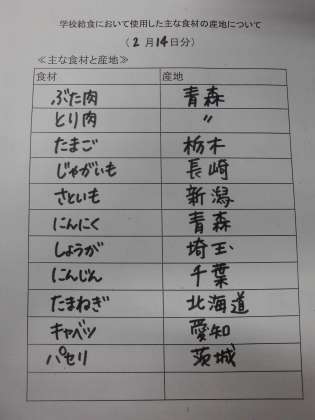 学校給食において使用した主な食材の産地について
(2月14日分)
≪主な食材と産地≫
食材 産地
ぶた肉 青森
とり肉 〃
たまご 栃木
じゃがいも 長崎
さといも 新潟
にんにく 青森
しょうが 埼玉
にんじん 千葉
たまねぎ 北海道
キャベツ 愛知
パセリ 茨城